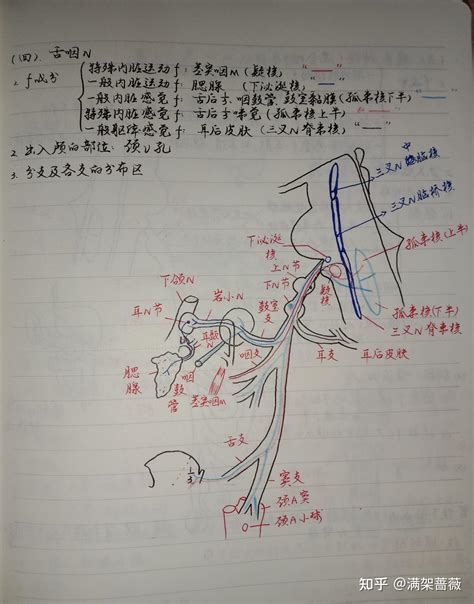 (四) 舌咽N
1. f成分
特殊内脏运动f: 茎突咽M (疑核, "——"
一般内脏运动f: 腮腺 (下泌涎核, "——"
一般内脏感觉f: 舌后⅓、咽鼓管、鼓室黏膜 (孤束核下半) "——"
特殊内脏感觉f: 舌后⅓味觉 (孤束核上半)
一般躯体感觉f: 耳后皮肤 (三叉N脊束核, "——"
2. 出入颅的部位: 颈V孔
3. 分支及各支的分布区
三叉N中脑核
三叉N脑桥核
下泌涎核
孤束核(上半)
上N节
下N节
疑核
下颌N
岩小N
耳N节
鼓室支
孤束核(下半)
三叉N脊束核
耳颞N
咽支
耳支
耳后皮肤
腮腺
咽鼓管
茎突咽M
舌支
⅓
窦支
颈A窦
颈A小球
知乎 @满架蔷薇